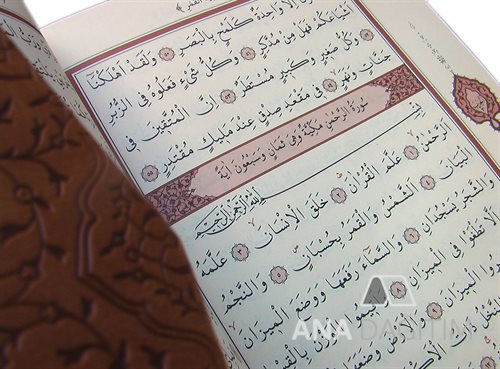 وَمَٓا اَمْرُنَٓا اِلَّا وَاحِدَةٌ كَلَمْحٍ بِالْبَصَرِ ۝٥٠ وَلَقَدْ اَهْلَكْنَٓا
اَشْيَاعَكُمْ فَهَلْ مِنْ مُدَّكِرٍ ۝٥١ وَكُلُّ شَيْءٍ فَعَلُوهُ فِي الزُّبُرِ
۝٥٢ وَكُلُّ صَغِيرٍ وَكَبِيرٍ مُسْتَطَرٌ ۝٥٣ اِنَّ الْمُتَّقِينَ فِي
جَنَّاتٍ وَنَهَرٍ ۝٥٤ فِي مَقْعَدِ صِدْقٍ عِنْدَ مَلِيكٍ مُقْتَدِرٍ ۝٥٥
سُورَةُ الرَّحْمٰنِ مَكِّيَّةٌ وَهِيَ ثَمَانٍ وَسَبْعُونَ اٰيَةً
بِسْمِ اللّٰهِ الرَّحْمٰنِ الرَّحِيمِ
اَلرَّحْمٰنُ ۝١ عَلَّمَ الْقُرْاٰنَ ۝٢ خَلَقَ الْاِنْسَانَ ۝٣ عَلَّمَهُ
الْبَيَانَ ۝٤ اَلشَّمْسُ وَالْقَمَرُ بِحُسْبَانٍ ۝٥ وَالنَّجْمُ
وَالشَّجَرُ يَسْجُدَانِ ۝٦ وَالسَّمَٓاءَ رَفَعَهَا وَوَضَعَ الْمِيزَانَ ۝٧
اَلَّا تَطْغَوْا فِي الْمِيزَانِ ۝٨ وَاَقِيمُوا الْوَزْنَ بِالْقِسْطِ
الْمِيزَانَ ۝٩ وَالْاَرْضَ وَضَعَهَا
ANA DAĞITIM